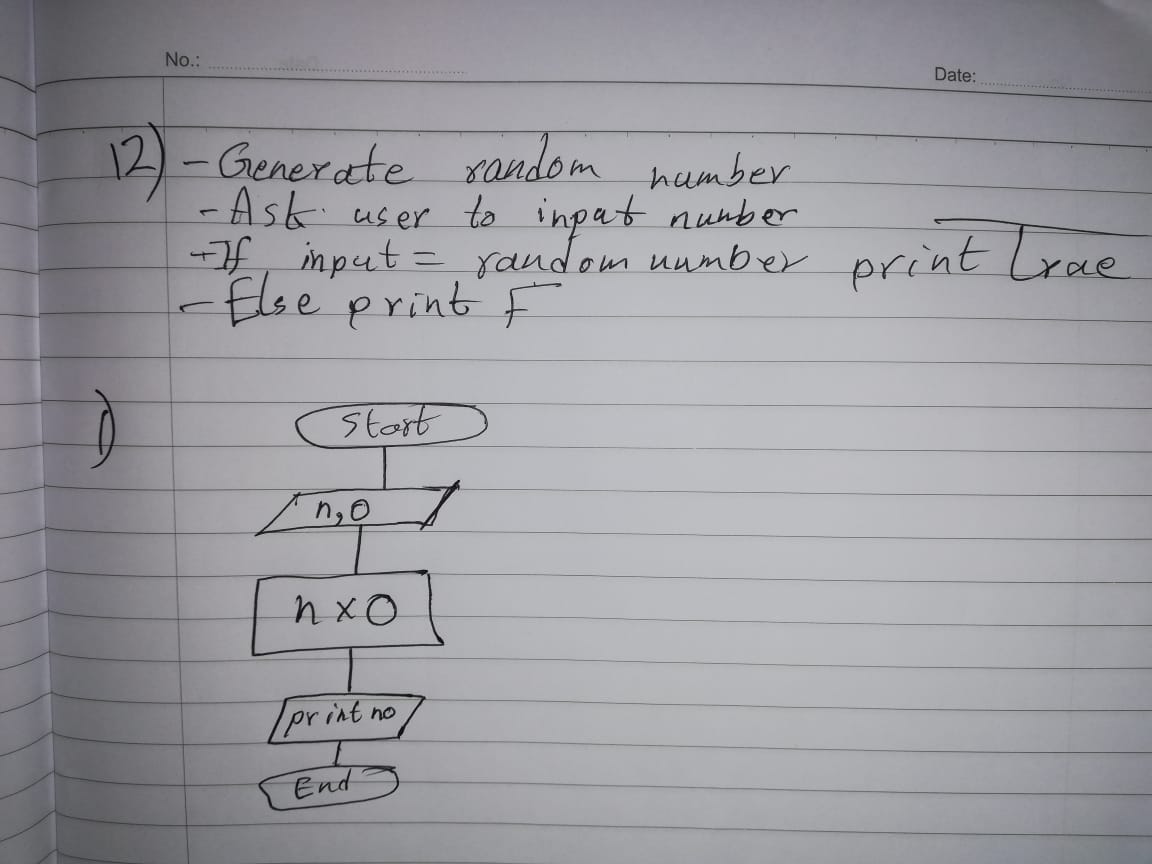 No.:
Date:
12) - Generate random number
- Ask user to input number
- If input = random number print True
- Else print F
1)
Start
n,0
n x 0
print no
End